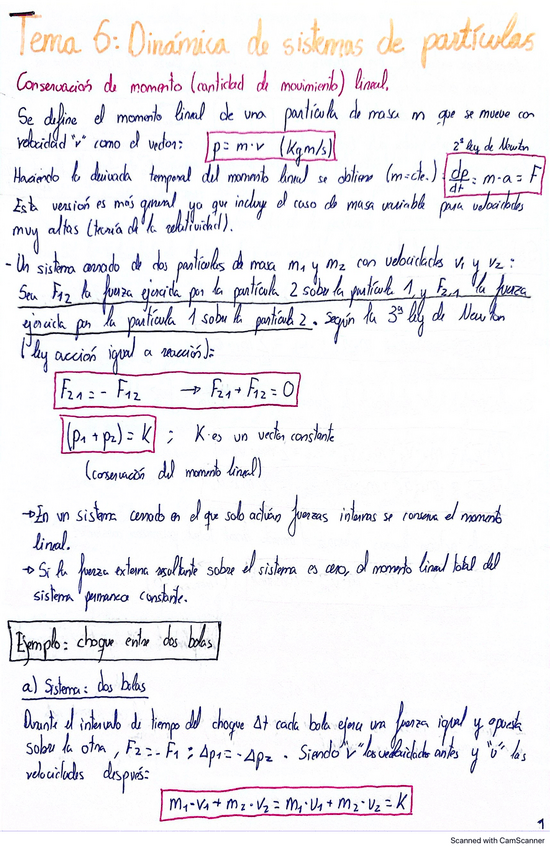 Tema 6: Dinámica de sistemas de partículas
Conservación de momento (cantidad de movimiento) lineal.
Se define el momento lineal de una partícula de masa m que se mueve con
velocidad "v" como el vector: p = m·v (Kgm/s)
2ª ley de Newton
Haciendo la derivada temporal del momento lineal se obtiene (m=cte.) dp/dt = m·a = F
Esta versión es más general ya que incluye el caso de masa variable para velocidades
muy altas (teoría de la relatividad).
- Un sistema cerrado de dos partículas de masa m1 y m2 con velocidades v1 y v2:
Sea F12 la fuerza ejercida por la partícula 2 sobre la partícula 1, y F2,1 la fuerza
ejercida por la partícula 1 sobre la partícula 2. Según la 3ª ley de Newton
(ley acción igual a reacción):
F21 = - F12 → F21 + F12 = 0
(p1 + p2) = K ; K es un vector constante
(conservación del momento lineal)
→ En un sistema cerrado en el que solo actúan fuerzas internas se conserva el momento
lineal.
→ Si la fuerza externa resultante sobre el sistema es cero, el momento lineal total del
sistema permanece constante.
Ejemplo: choque entre dos bolas
a) Sistema: dos bolas
Durante el intervalo de tiempo del choque Δt cada bola ejerce una fuerza igual y opuesta
sobre la otra, F2 = - F1 ; Δp1 = - Δp2 . Siendo "v" las velocidades antes y "u" las
velocidades después:
m1·v1 + m2·v2 = m1·u1 + m2·u2 = K
1
Scanned with CamScanner